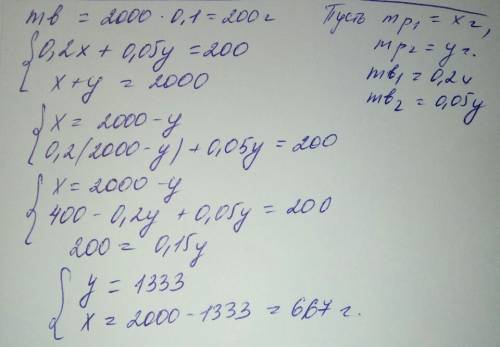 mв = 2000 · 0,1 = 200 г
Пусть mр₁ = x г,
mр₂ = y г.
mв₁ = 0,2x
mв₂ = 0,05y
0,2x + 0,05y = 200
x + y = 2000
x = 2000 - y
0,2(2000 - y) + 0,05y = 200
x = 2000 - y
400 - 0,2y + 0,05y = 200
200 = 0,15y
y = 1333
x = 2000 - 1333 = 667 г.